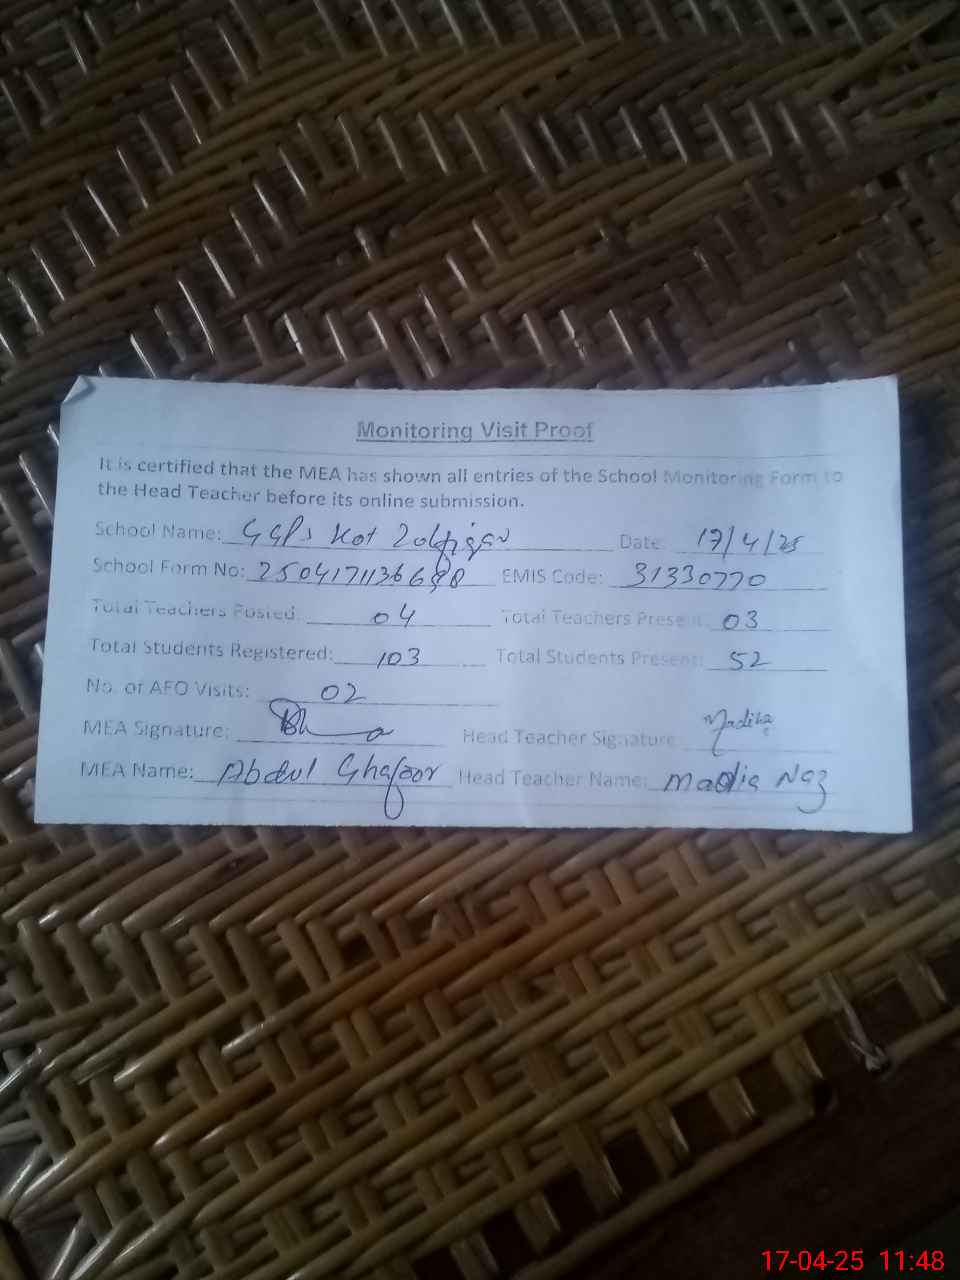 Monitoring Visit Proof
It is certified that the MEA has shown all entries of the School Monitoring Form to
the Head Teacher before its online submission.
School Name: GGPS Kot Zolfiqar Date: 17/4/25
School Form No: EMIS Code: 31330770
Total Teachers Posted: 04 Total Teachers Present: 03
Total Students Registered: 103 Total Students Present: 52
No. of AEO Visits: 02
MEA Signature: Head Teacher Signature: Madiha
MEA Name: Abdul Ghafoor Head Teacher Name: Naz
17-04-25 11:48